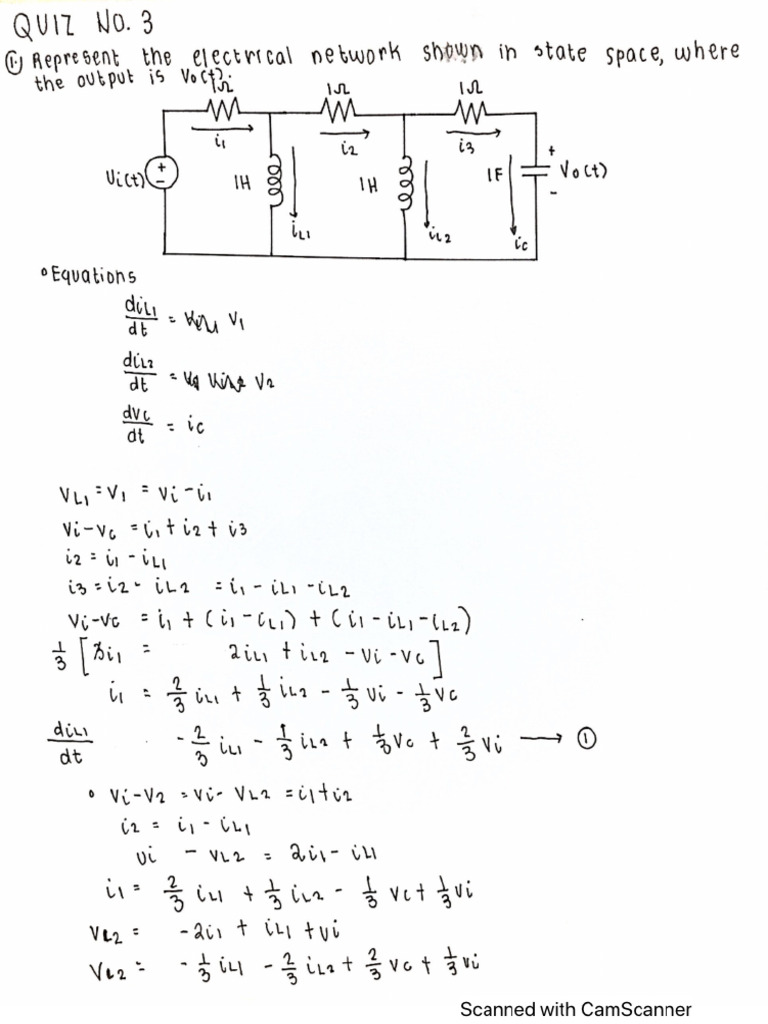 QUIZ NO. 3
① Represent the electrical network shown in state space, where
the output is Vo(t).
1Ω 1Ω 1Ω
i1 i2 i3
Vi(t) + - 1H 1H 1F + Vo(t) -
iL1 iL2 ic
° Equations
diL1/dt = V1
diL2/dt = V2
dvc/dt = ic
VL1 = V1 = Vi - i1
Vi - Vc = i1 + i2 + i3
i2 = i1 - iL1
i3 = i2 - iL2 = i1 - iL1 - iL2
Vi - Vc = i1 + (i1 - iL1) + (i1 - iL1 - iL2)
1/3 [3i1 = 2iL1 + iL2 - Vi - Vc]
i1 = 2/3 iL1 + 1/3 iL2 - 1/3 Vi - 1/3 Vc
diL1/dt - 2/3 iL1 - 1/3 iL2 + 1/3 Vc + 2/3 Vi → ①
° Vi - V2 = Vi - VL2 = i1 + i2
i2 = i1 - iL1
Vi - VL2 = 2i1 - iL1
i1 = 2/3 iL1 + 1/3 iL2 - 1/3 Vc + 1/3 Vi
VL2 = -2i1 + iL1 + Vi
VL2 = - 1/3 iL1 - 2/3 iL2 + 2/3 Vc + 1/3 Vi
Scanned with CamScanner